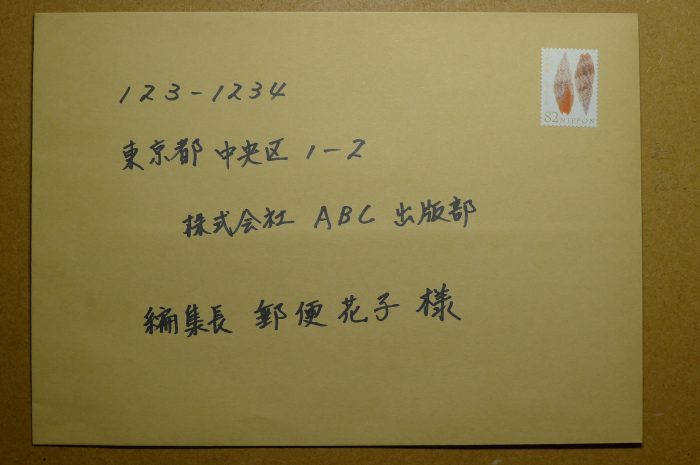 123-1234
82 NIPPON
東京都 中央区 1-2
株式会社 ABC 出版部
編集長 郵便花子 様